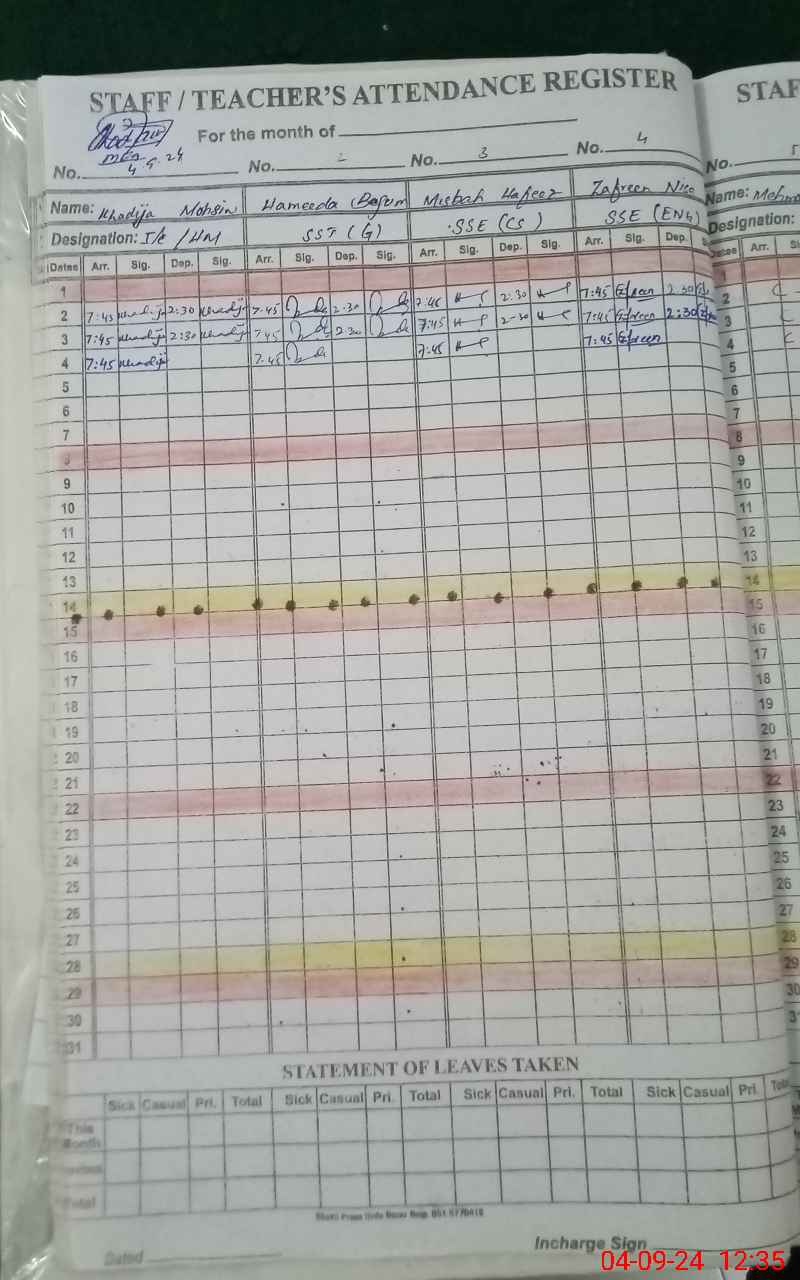 STAFF / TEACHER'S ATTENDANCE REGISTER
STAF
For the month of
4.9.24
No. No. 2 No. 3 No. 4 No. 5
Name: Khadija Mohsin Hameeda Begum Misbah Hafeez Zafreen Name:
Designation: I/c / HM SST (G) SSE (CS) SSE (ENG) Designation:
Dates Arr. Sig. Dep. Sig. Arr. Sig. Dep. Sig. Arr. Sig. Dep. Sig. Arr. Sig. Dep. S Dates Arr. S
1 1
2 7:45 Khadija 2:30 Khadija 7.45 2.30 7:45 2:30 7:45 2:30 2
3 7:45 Khadija 2:30 Khadija 7.45 2.30 7:45 2-30 7:45 2:30 3
4 7:45 Khadija 7.45 7:45 7:45 4
5 5
6 6
7 7
8 8
9 9
10 10
11 11
12 12
13 13
14 14
15 15
16 16
17 17
18 18
19 19
20 20
21 21
22 22
23 23
24 24
25 25
26 26
27 27
28 28
29 29
30 30
31 3
STATEMENT OF LEAVES TAKEN
Sick Casual Pri. Total Sick Casual Pri. Total Sick Casual Pri. Total Sick Casual Pri. Tota
This
Month
Total
Dated Incharge Sign
04-09-24 12:35